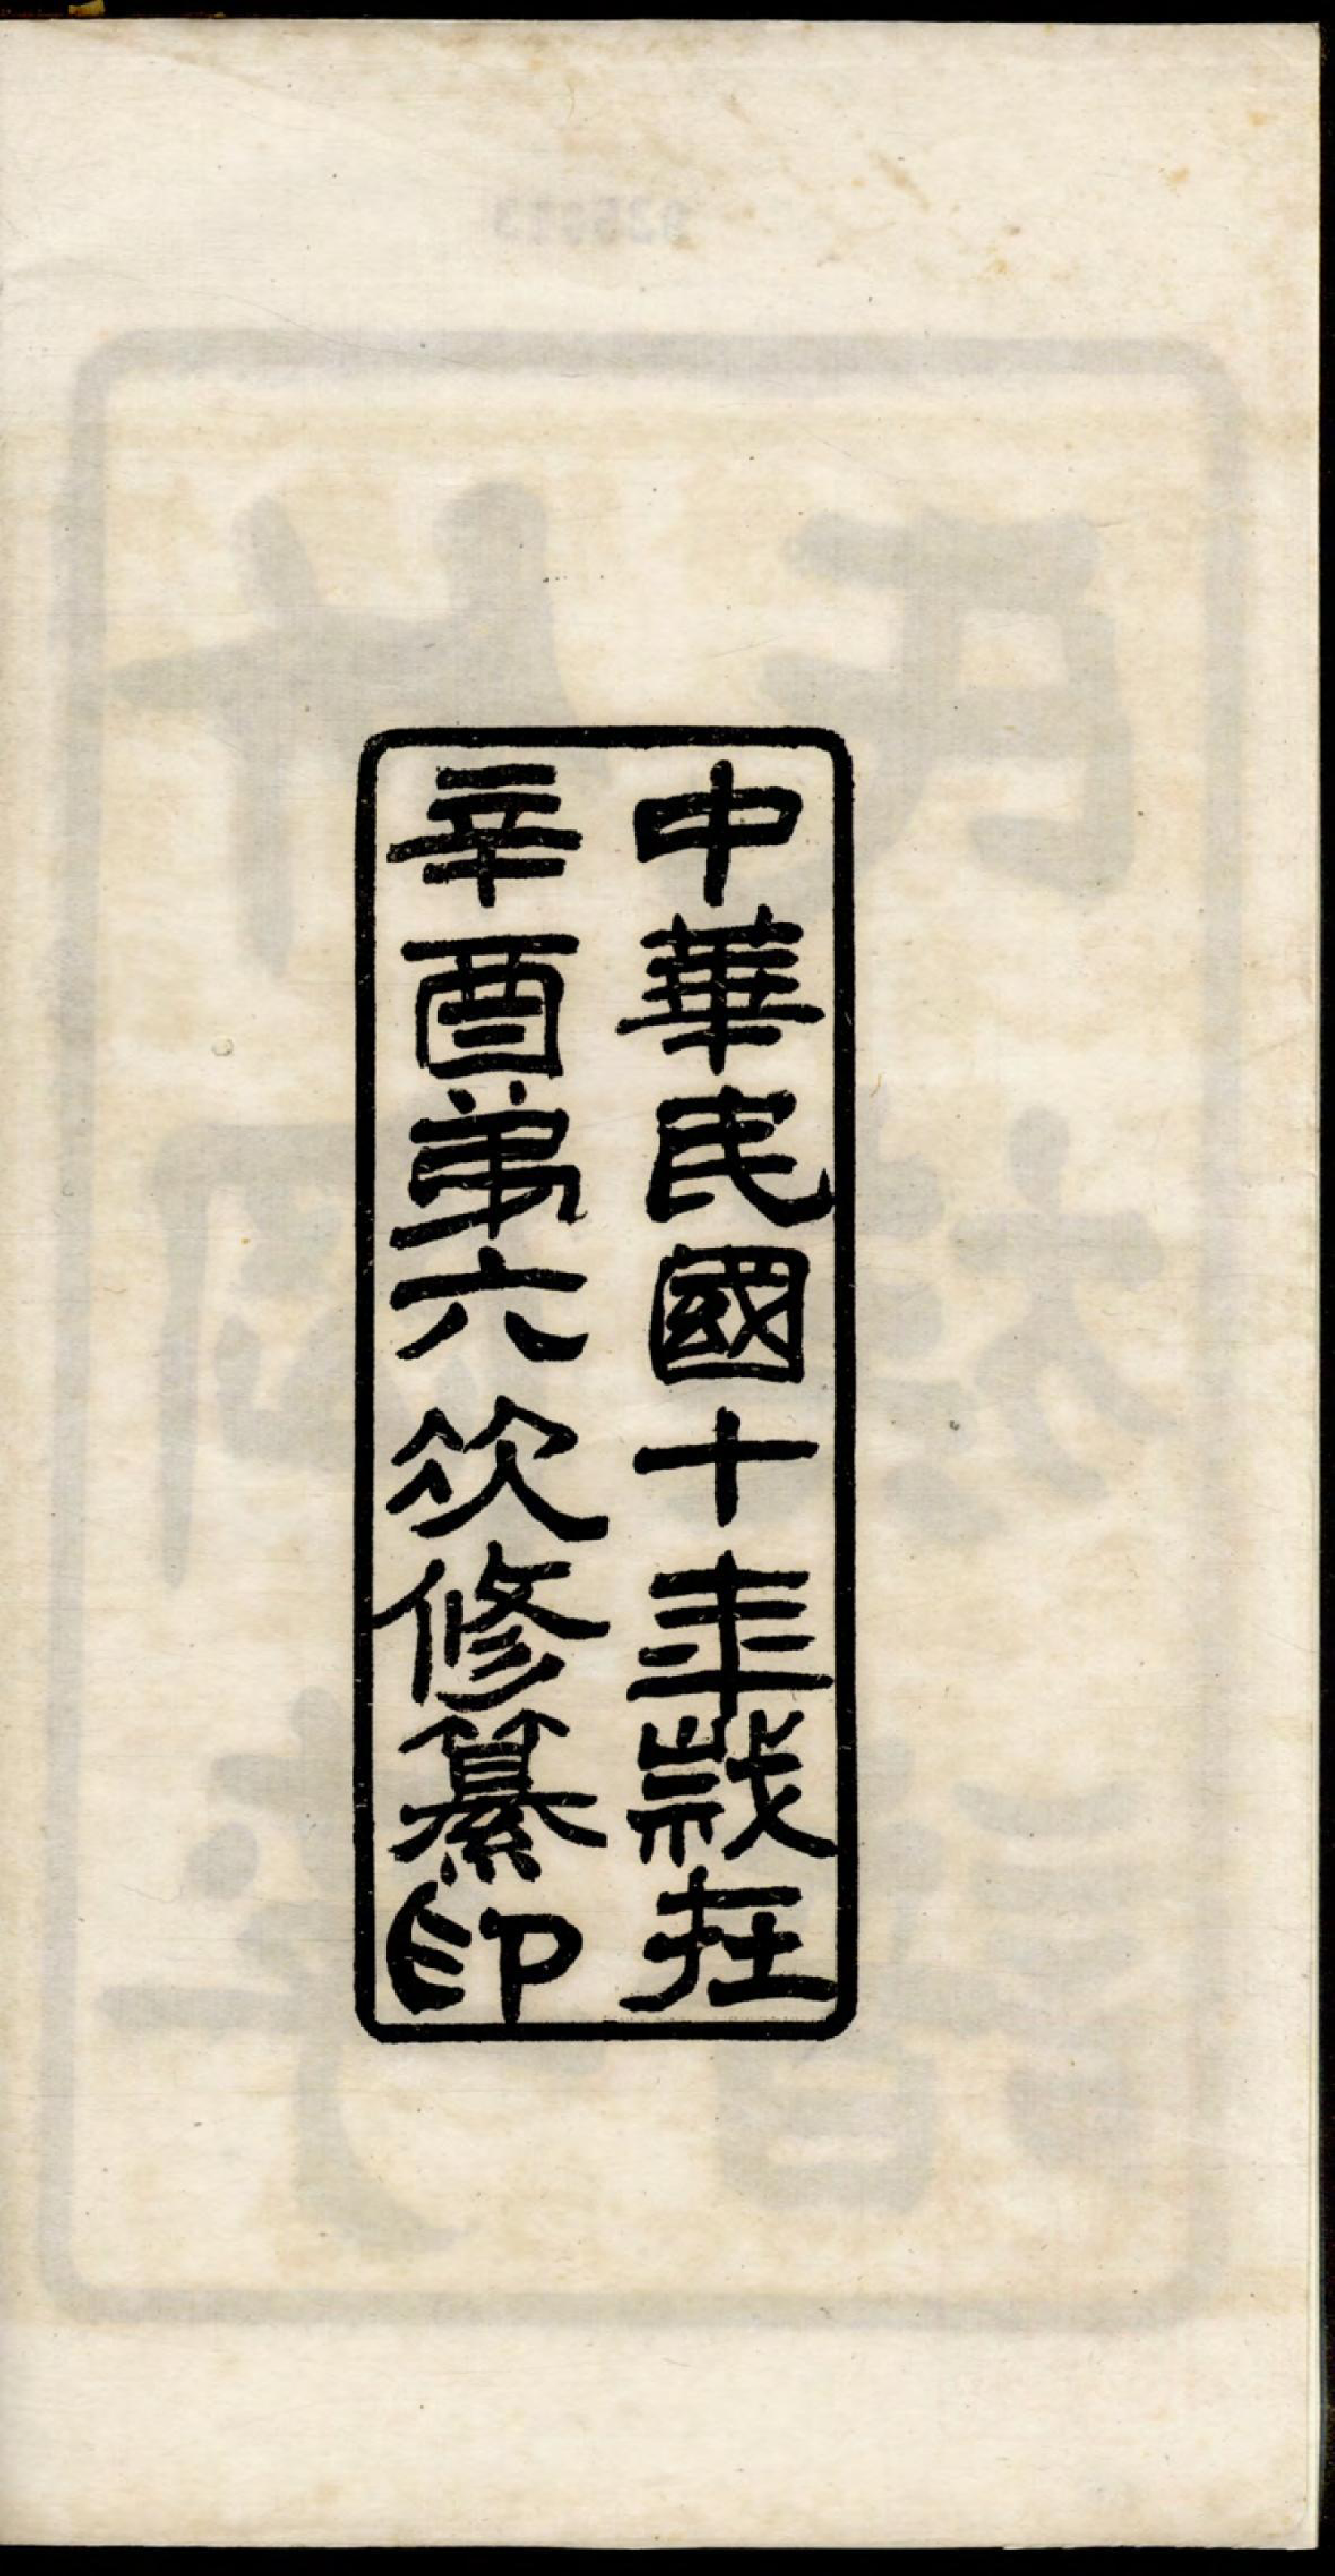 中華民國十年歲在
辛酉弟六次修纂印